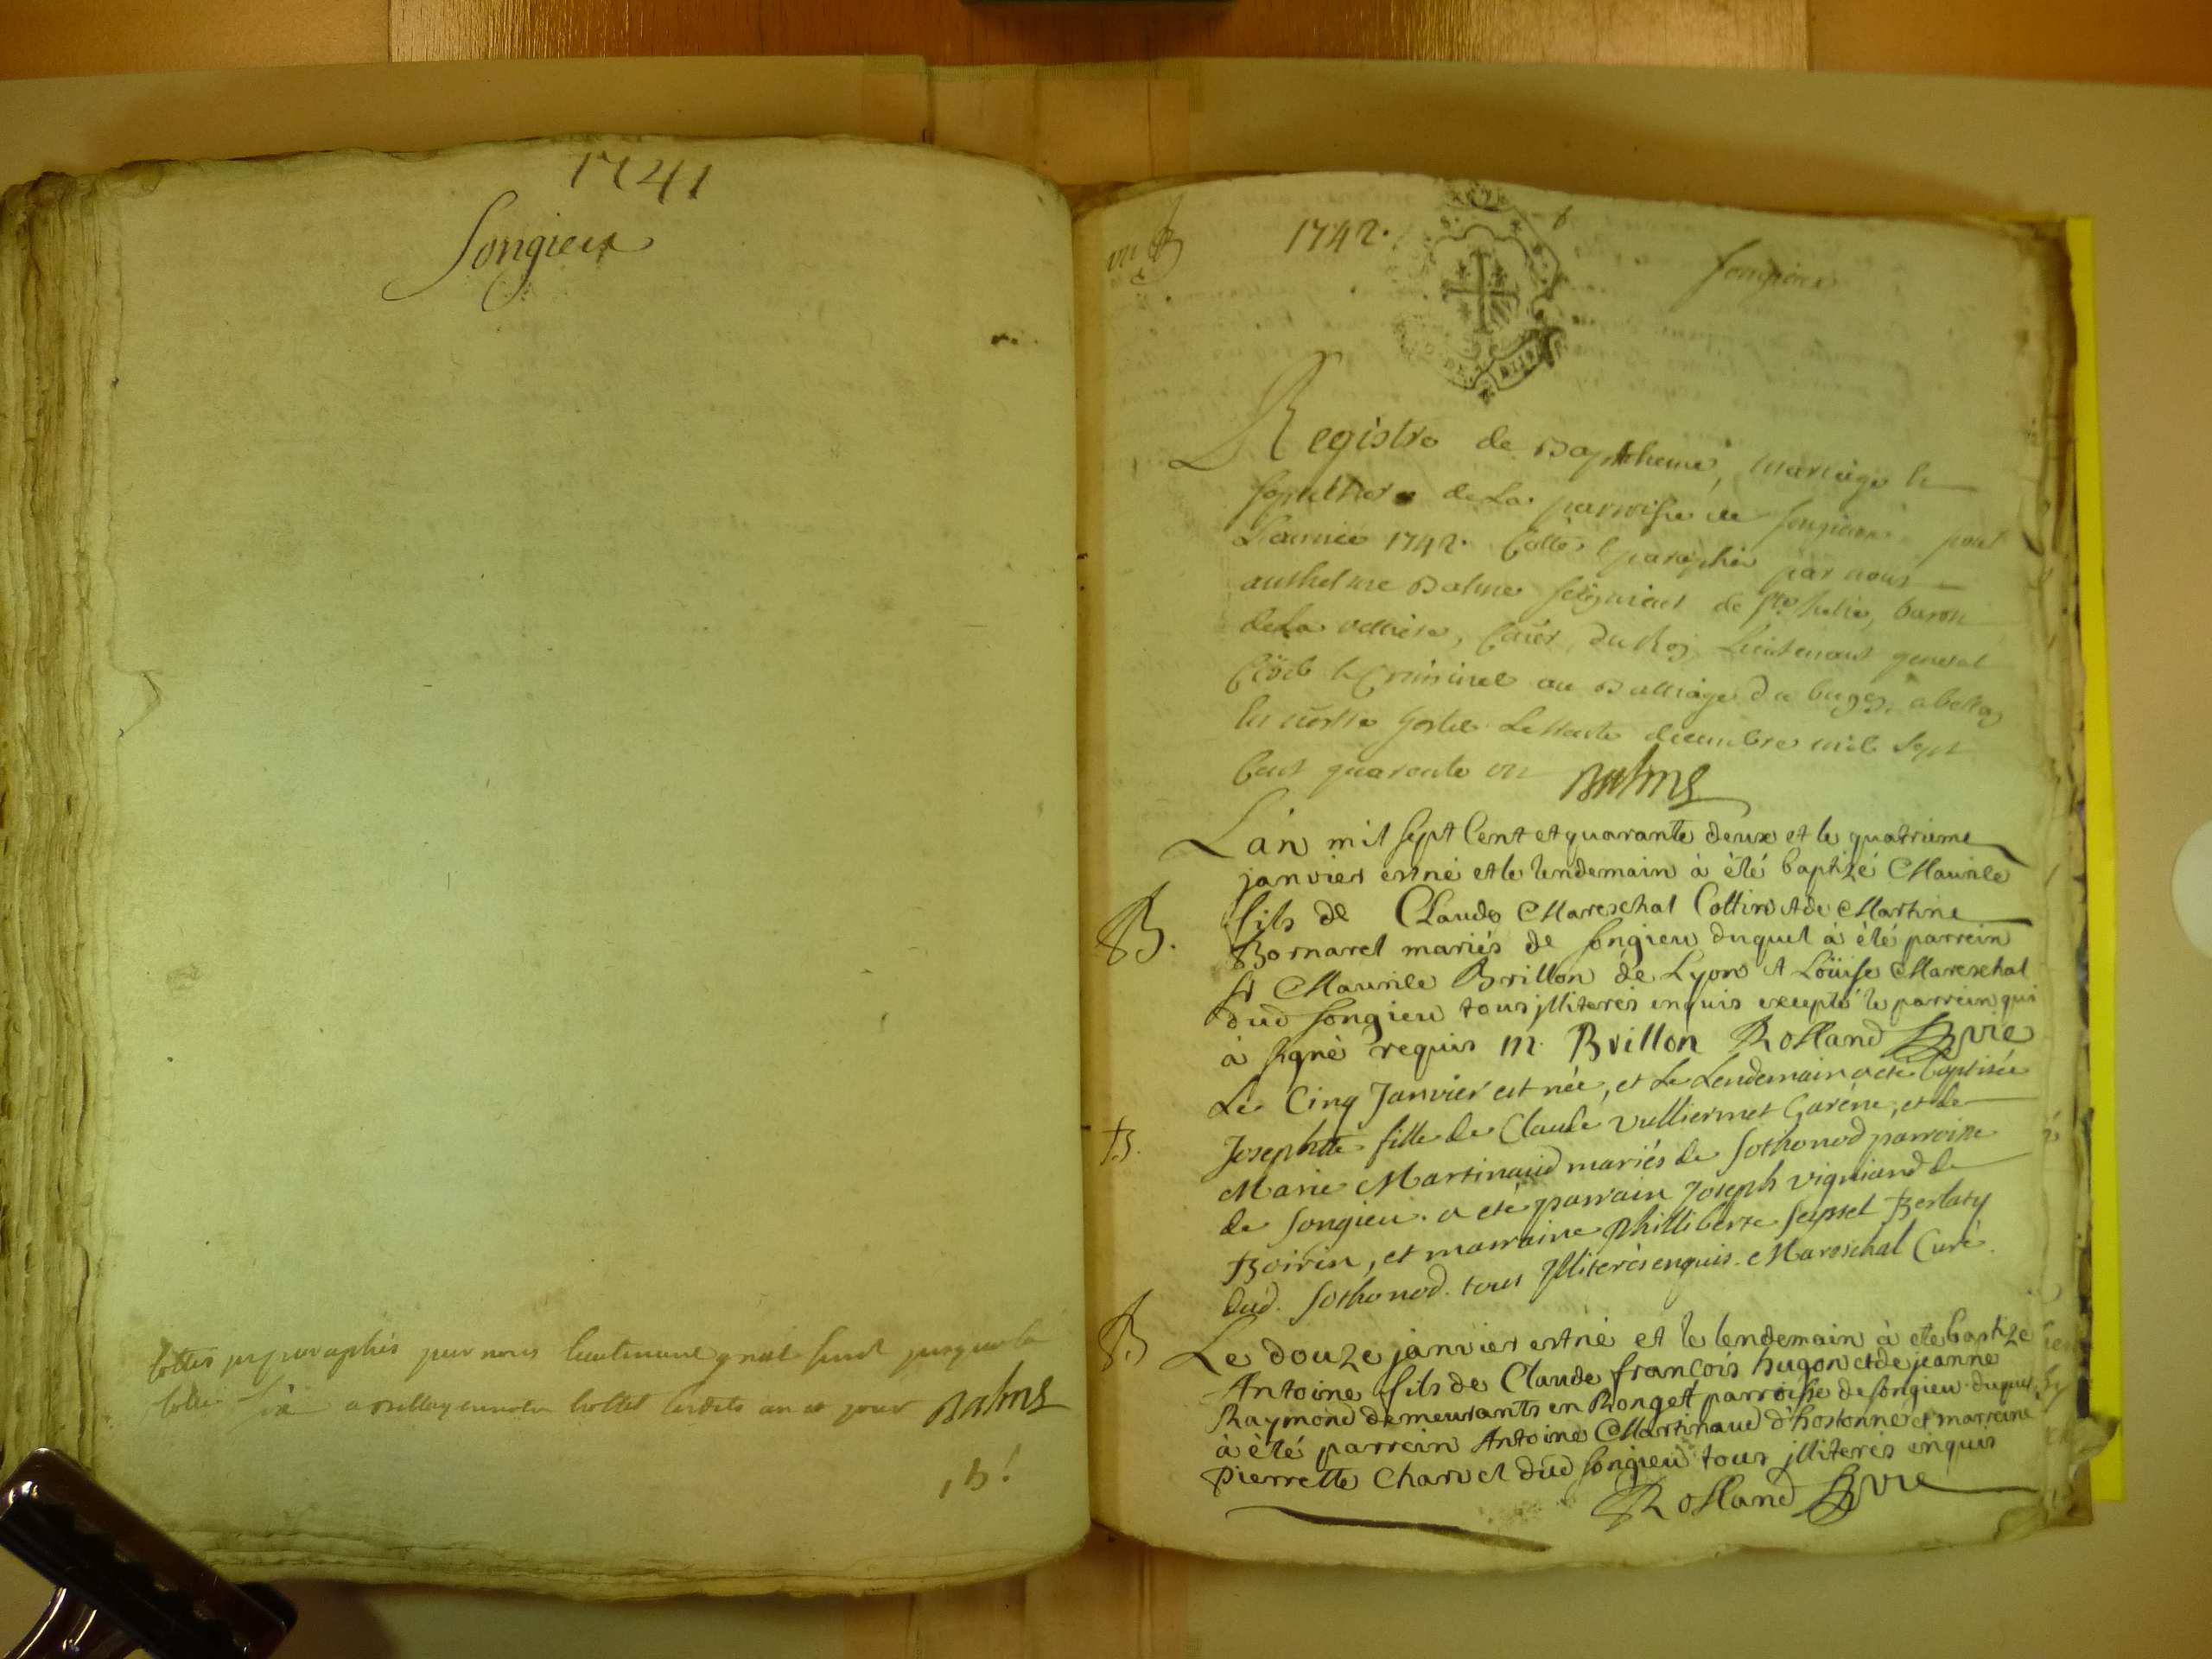 1741
Songieu
Cottés et paraphés par nous lieutenant gnal jusques
six a Belley en notre hostel lesdits an et jour Balme
1742.
Songieu
Registre de Baptheme, mariage et
sepulture de La parroisse de songieu pour
L'année 1742. Cotté et paraphé par nous
anthelme Balme seigneur de ste Julie, baron
de La velliere, du Roy Lieutenant general
Civil et Criminel au Balliage du bugey, a belley
En nostre hostel Le trente decembre mil sept
Cent quarante un Balme
L'an mil sept Cent et quarante deux et le quatrieme
janvier est né et le lendemain à été baptizé Maurile
B. fils de Claude Mareschal Collin et de Martine
Bornarel mariés de songieu duquel à été parrein
sr Maurile Brillon de Lyon et Loüise Mareschal
dud songieu tous jlliterés enquis excepté le parrein qui
à signé requis M. Brillon Rolland vic
Le Cinq Janvier est née, et Le Lendemain a été baptisée
B. Josephtte fille de Claude Vulliermet Garéne, et de
Marie Martinaud mariés de Sothonod parroisse
de Songieu. a été parrain Joseph vigniand de
Boirin, et marraine Philliberte Seyssel Berlaty
dud. Sothonod. tous Jlliterés enquis. Mareschal Curé.
B Le douze janvier est né et le lendemain à été baptize
Antoine fils de Claude françois hugon et de jeanne
Raymond demeurants en Ronget parroisse de songieu duquel
à été parrein Antoine Martinaud d'hostonne et marreine
pierrette Charvet dud songieu tous jlliterés enquis
Rolland vic